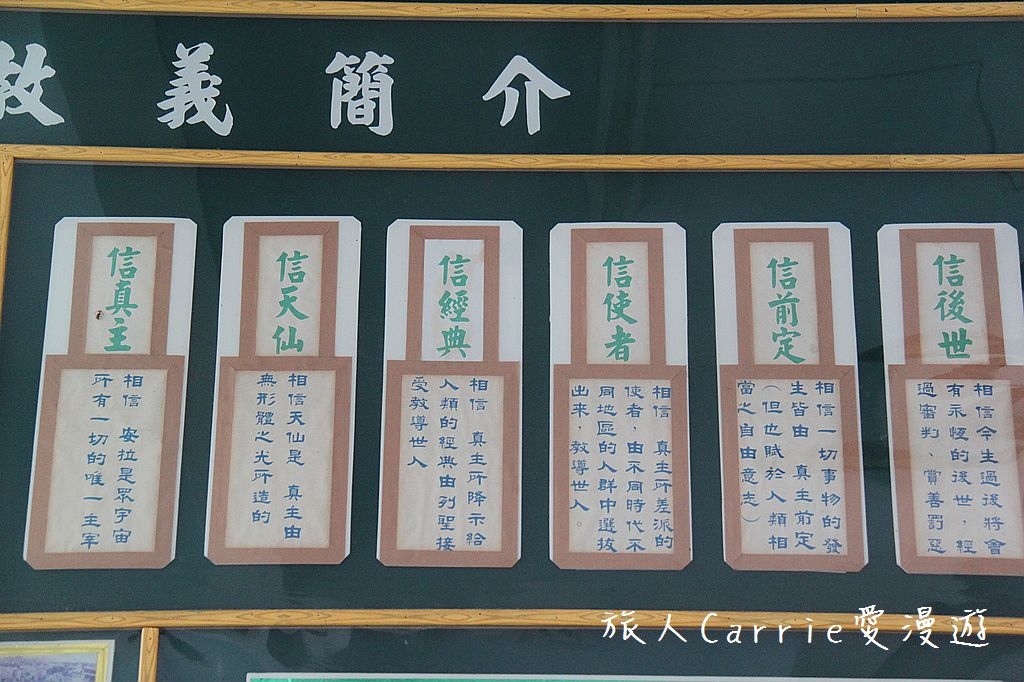 教義簡介
信真主
相信　安拉是眾宇宙
所有一切的唯一主宰
信天仙
相信天仙是　真主由
無形體之光所造的
信經典
相信　真主所降示給
人類的經典由列聖接
受教導世人
信使者
相信　真主所差派的
使者，由不同時代不
同地區的人群中選拔
出來，教導世人。
信前定
相信一切事物的發
生皆由　真主前定
（但也賦於人類相
當之自由意志）
信後世
相信今生過後將會
有永恆的後世，經
過審判、賞善罰惡
旅人Carrie愛漫遊